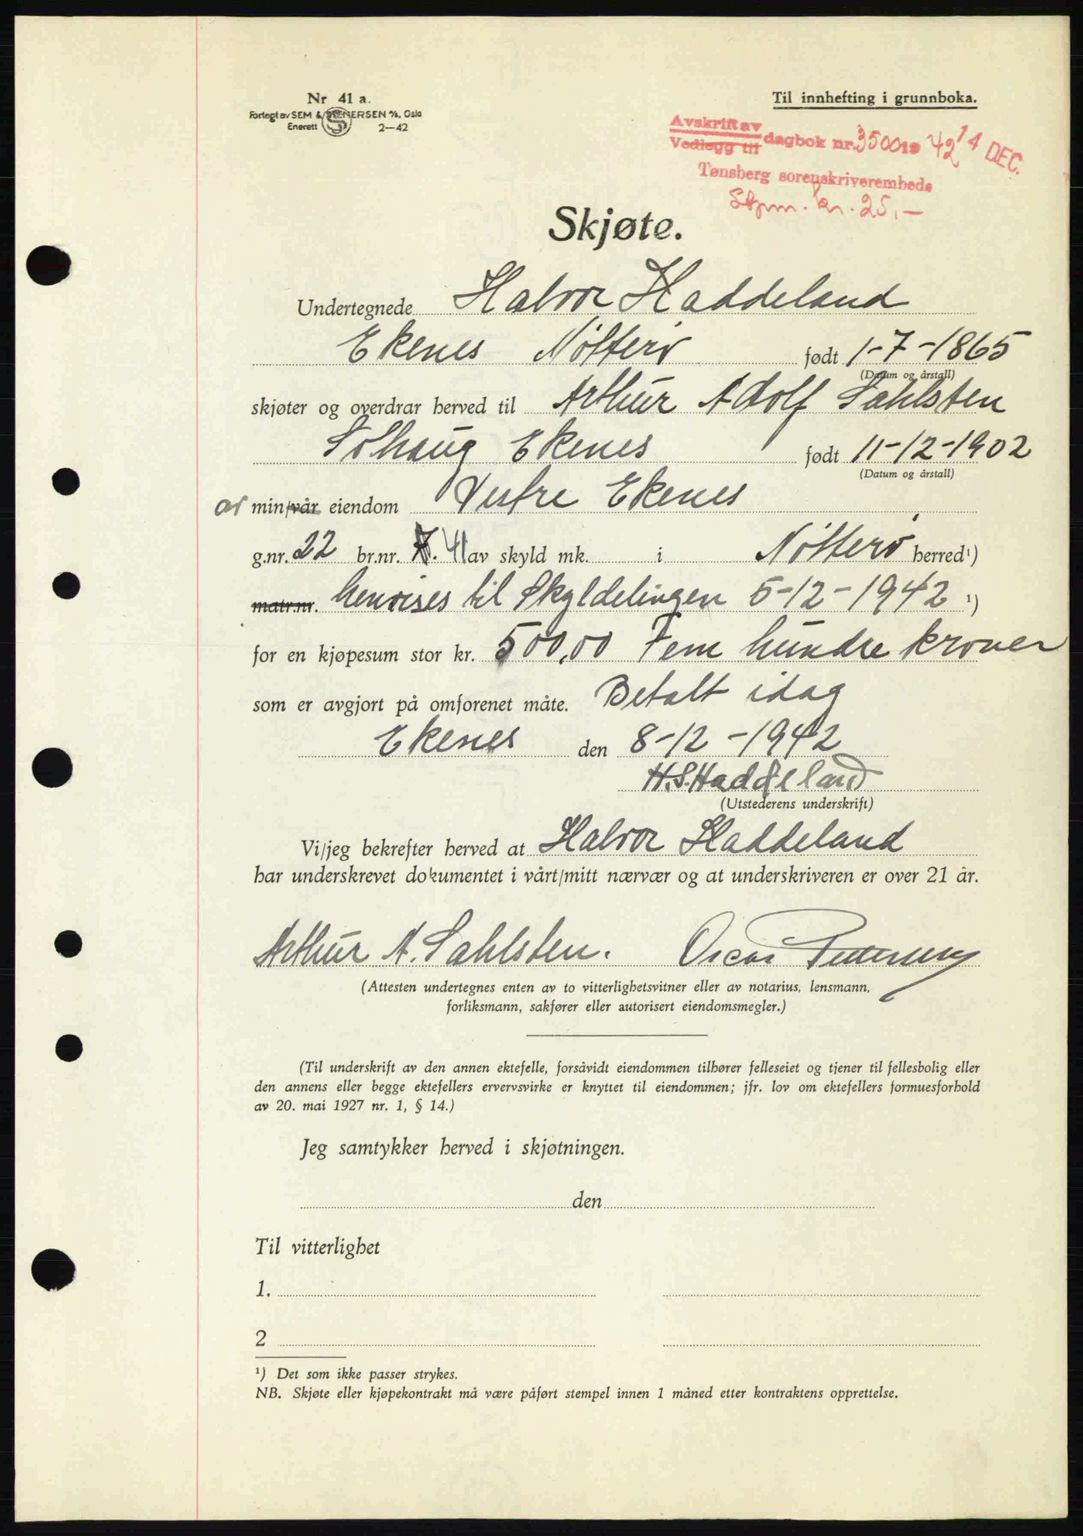 Nr 41 a.
Forlagt av SEM & STENERSEN A/S, Oslo
Enerett 2-42
Til innhefting i grunnboka.
Avskrift av
Vedlegg til dagbok nr. 3500 19 42 14 DEC.
Tønsberg sorenskriverembede
Stpm. kr. 25,-
Skjøte.
Undertegnede Halvor Haddeland
Ekenes Nøtterø født 1-7-1865
(Datum og årstall)
skjøter og overdrar herved til Arthur Adolf Sahlsten
Solhaug Ekenes født 11-12-1902
(Datum og årstall)
av min/vår eiendom Vestre Ekenes
g.nr. 22 br.nr. 7. 41 av skyld mk. i Nøtterø herred ¹)
matr.nr. henvises til Skyldelingen 5-12-1942 ¹)
for en kjøpesum stor kr. 500,00 Fem hundre kroner
som er avgjort på omforenet måte. Betalt idag
Ekenes den 8-12-1942
H.S. Haddeland
(Utstederens underskrift)
Vi/jeg bekrefter herved at Halvor Haddeland
har underskrevet dokumentet i vårt/mitt nærvær og at underskriveren er over 21 år.
Arthur A. Sahlsten. Oscar Pettersen
(Attesten undertegnes enten av to vitterlighetsvitner eller av notarius, lensmann,
forliksmann, sakfører eller autorisert eiendomsmegler.)
(Til underskrift av den annen ektefelle, forsåvidt eiendommen tilhører felleseiet og tjener til fellesbolig eller
den annens eller begge ektefellers ervervsvirke er knyttet til eiendommen; jfr. lov om ektefellers formuesforhold
av 20. mai 1927 nr. 1, § 14.)
Jeg samtykker herved i skjøtningen.
den
Til vitterlighet
1.
2
¹) Det som ikke passer strykes.
NB. Skjøte eller kjøpekontrakt må være påført stempel innen 1 måned etter kontraktens opprettelse.